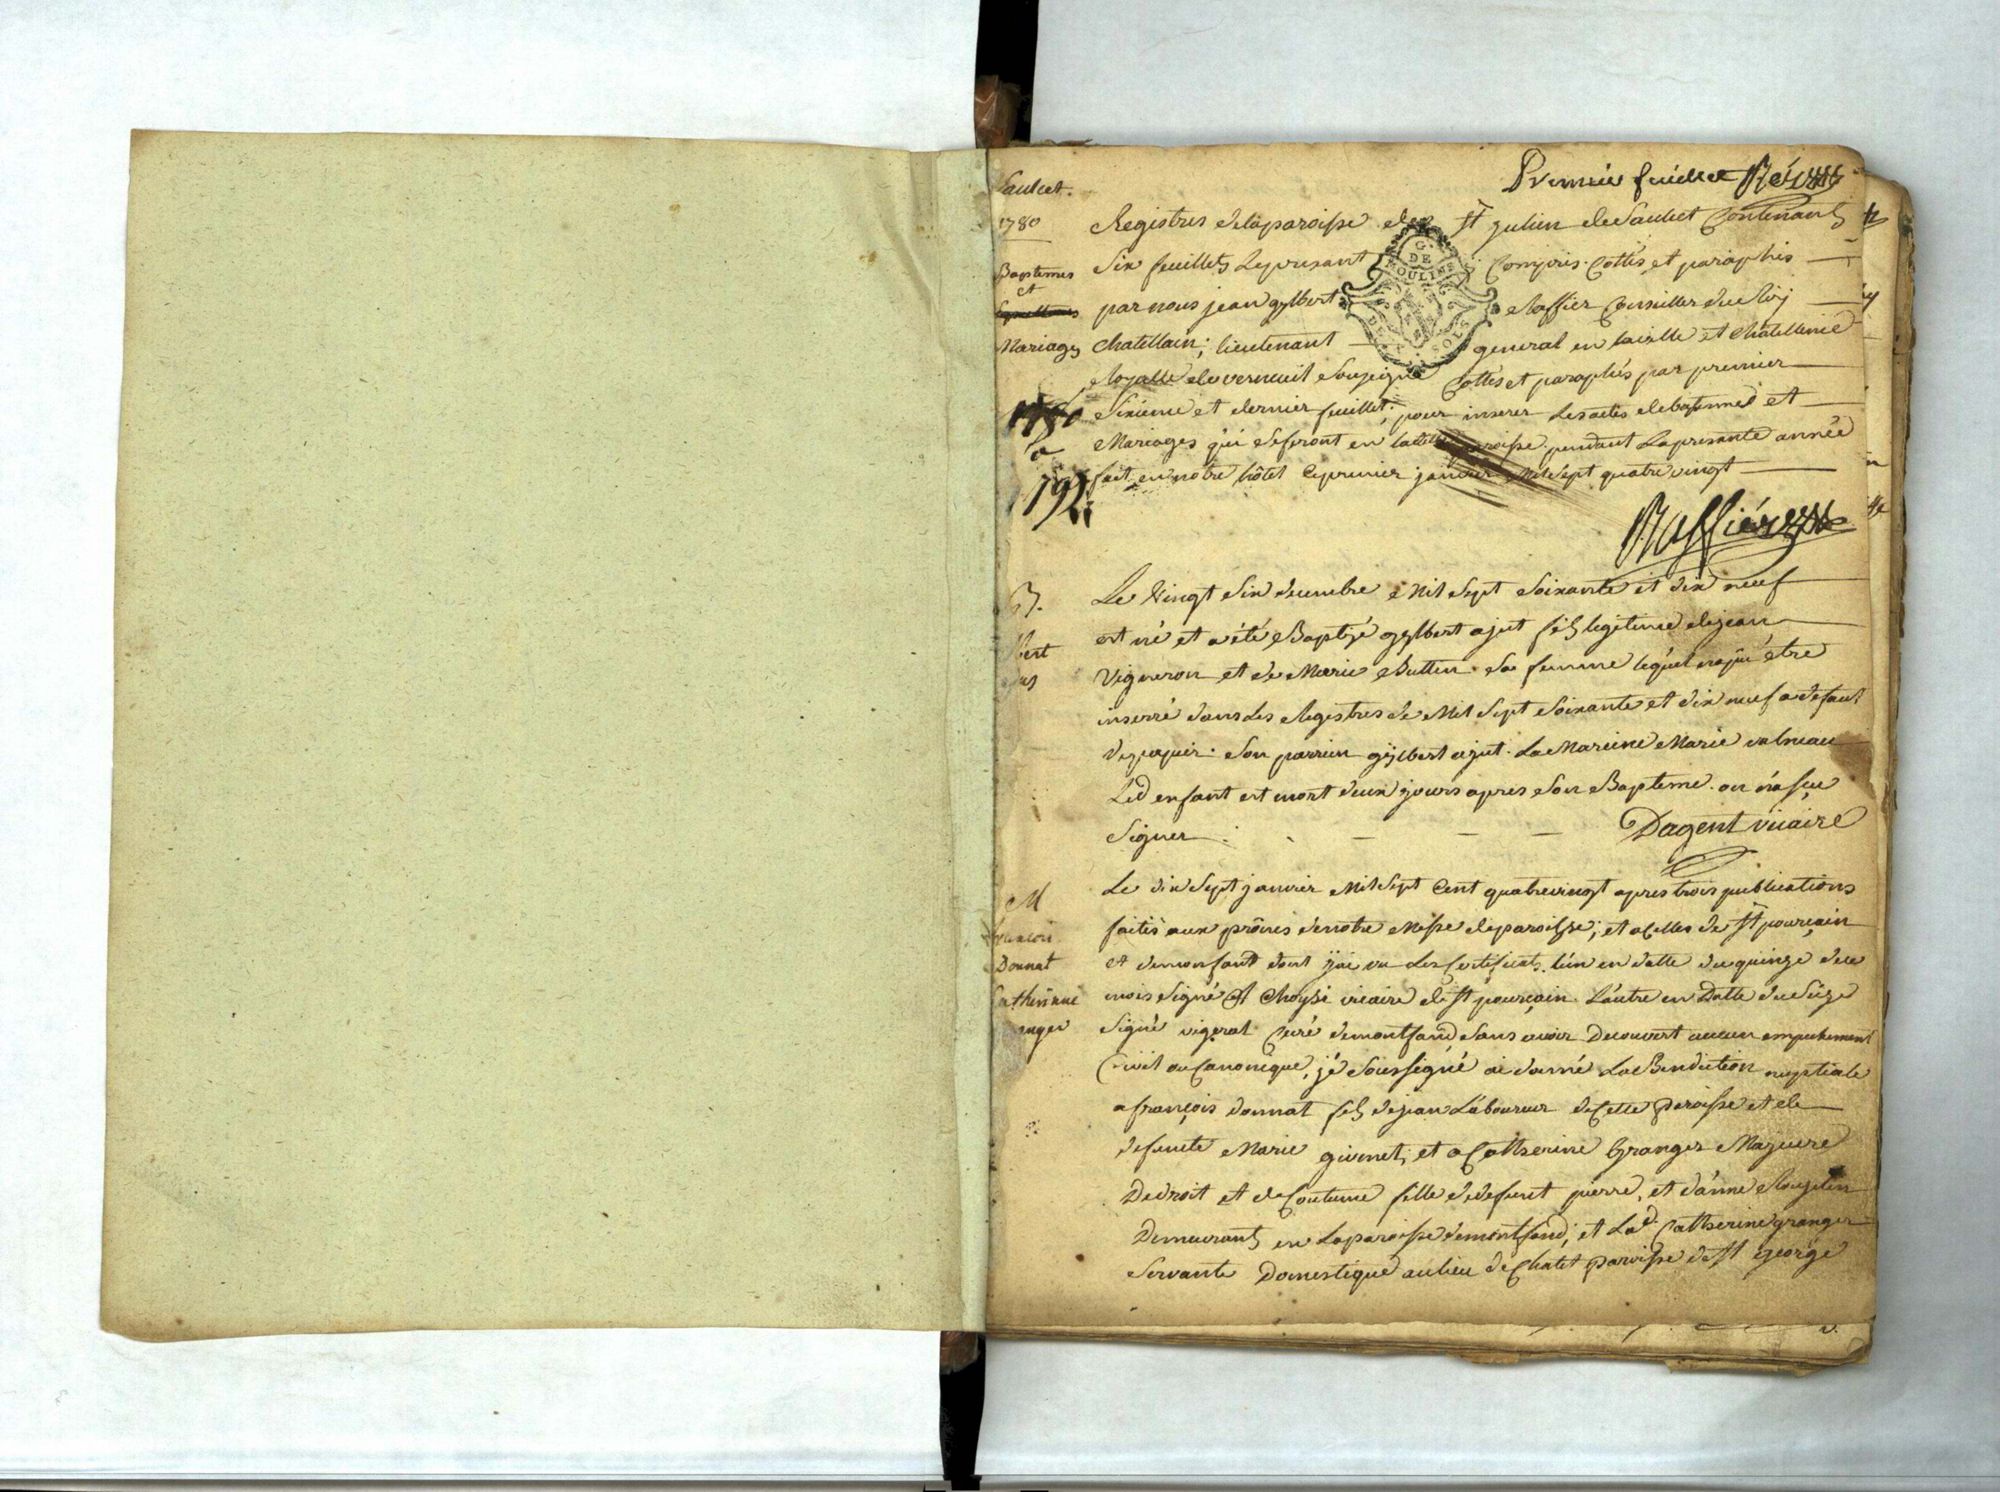 Premier feuillet
Saulcet.
1780
Baptemes
et
Mariages
1780
a
1792
Registres de la paroisse de St julien de Saulcet Contenants
Six feuillets Le present compris. Cottés et paraphés
par nous jean gylbert Raffier Conseiller du Roy
chatellain; lieutenant general en la ville et Chatellenie
Royalle de verneuil Soussigné Cottés et paraphés par premier
Sixieme et dernier feuillet; pour inserer Les actes de batemes et
Mariages qui se feront en ladite paroisse pendant La presante année
fait en notre hôtel Ce premier janvier Mil Sept quatre vingt
G. DE MOULINS
DEUX SOLS
B.
Le Vingt Six decembre Mil Sept Soixante et dix neuf
est né et a été Baptisé gylbert ajut fils legitime de jean
Vigneron et de Marie Buttin Sa femme lequel na pu être
inserré dans Les Registres de Mil Sept Soixante et dix neuf a defaut
de papier. Son parrein gylbert ajut. La Mareine Marie valneau
Led enfant est mort deux jours apres Son Bapteme. on n'a sçu
Signer Dagent viuaire
M
Donnat
Catherinne
Le dix Sept janvier Mil Sept Cent quatre vingt apres trois publications
faites aux prônes de notre Messe de paroisse; et a Celles de St pourçain
et de monfand dont j'ai vu Les Certificats. L'un en datte du quinze de ce
mois Signé Choysi vicaire de St pourçain. L'autre en Datte du Size
Signé vigeral Curé de montfand Sans avoir Decouvert aucun empechement
Civil ou Canonique, je Soussigné ai donné La Benediction nuptiale
a françois donnat fils de jean Laboureur de Cette paroisse et de
defunte Marie givenet, et a Catherine Granger Majeure
De droit et de Coutume fille de defunt pierre, et d'anne
Demeurants en La paroisse de montfand; et Lad. Catherine granger
Servante Domestique au lieu de Chatet paroisse de St george